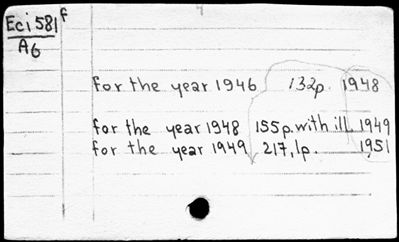 Eci 581 f
A6
for the year 1946 132p. 1948
for the year 1948 155p. with ill. 1949
for the year 1949 217,1p. 1951